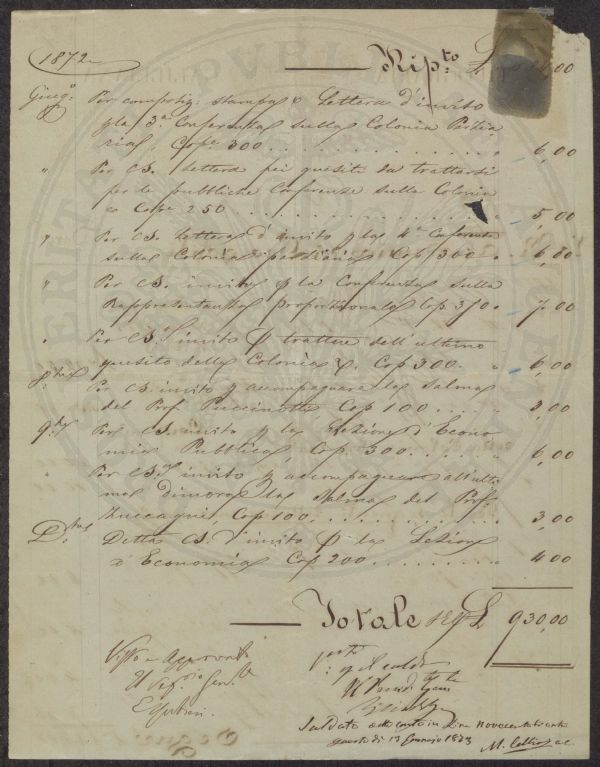 1872
Rip.to £ 00
Giug.o Per compostiz: stampa e Lettera d'invito
p la 3.a Conferenza sulla Colonia Parzia
ria, Cop.e 300 6,00
" Per CS. Lettera pei quesiti da trattarsi
per le pubbliche Conferenze sulla Colonia
Cop.e 250 5,00
" Per CS. Lettera d'invito p la 4.a Conferenza
sulla Colonia parziaria Cop. 300 6,00
" Per CS. invito p la Conferenza sulla
Rappresentanza proporzionale Cop. 370 7,00
" Per CS. invito p trattare dell'ultimo
quesito della Colonia Cop. 300 6,00
Per CS. invito p accompagnare la Salma
del Prof. Puccinotti Cop. 100 3,00
Per CS. invito p la Lezione d'Econo
mia Pubblica, Cop. 300 6,00
" Per CS. invito p accompagnare all'ulti
ma dimora la Salma del Prof.
Zuccagni, Cop. 100 3,00
D. Detta CS. d'invito p la Lezione
d'Economia Cop. 200 4,00
Totale £ 930,00
Visto e Approvato
Il Seg.rio Gen.le
Saldato
questo dì 13 Gennaio 1873